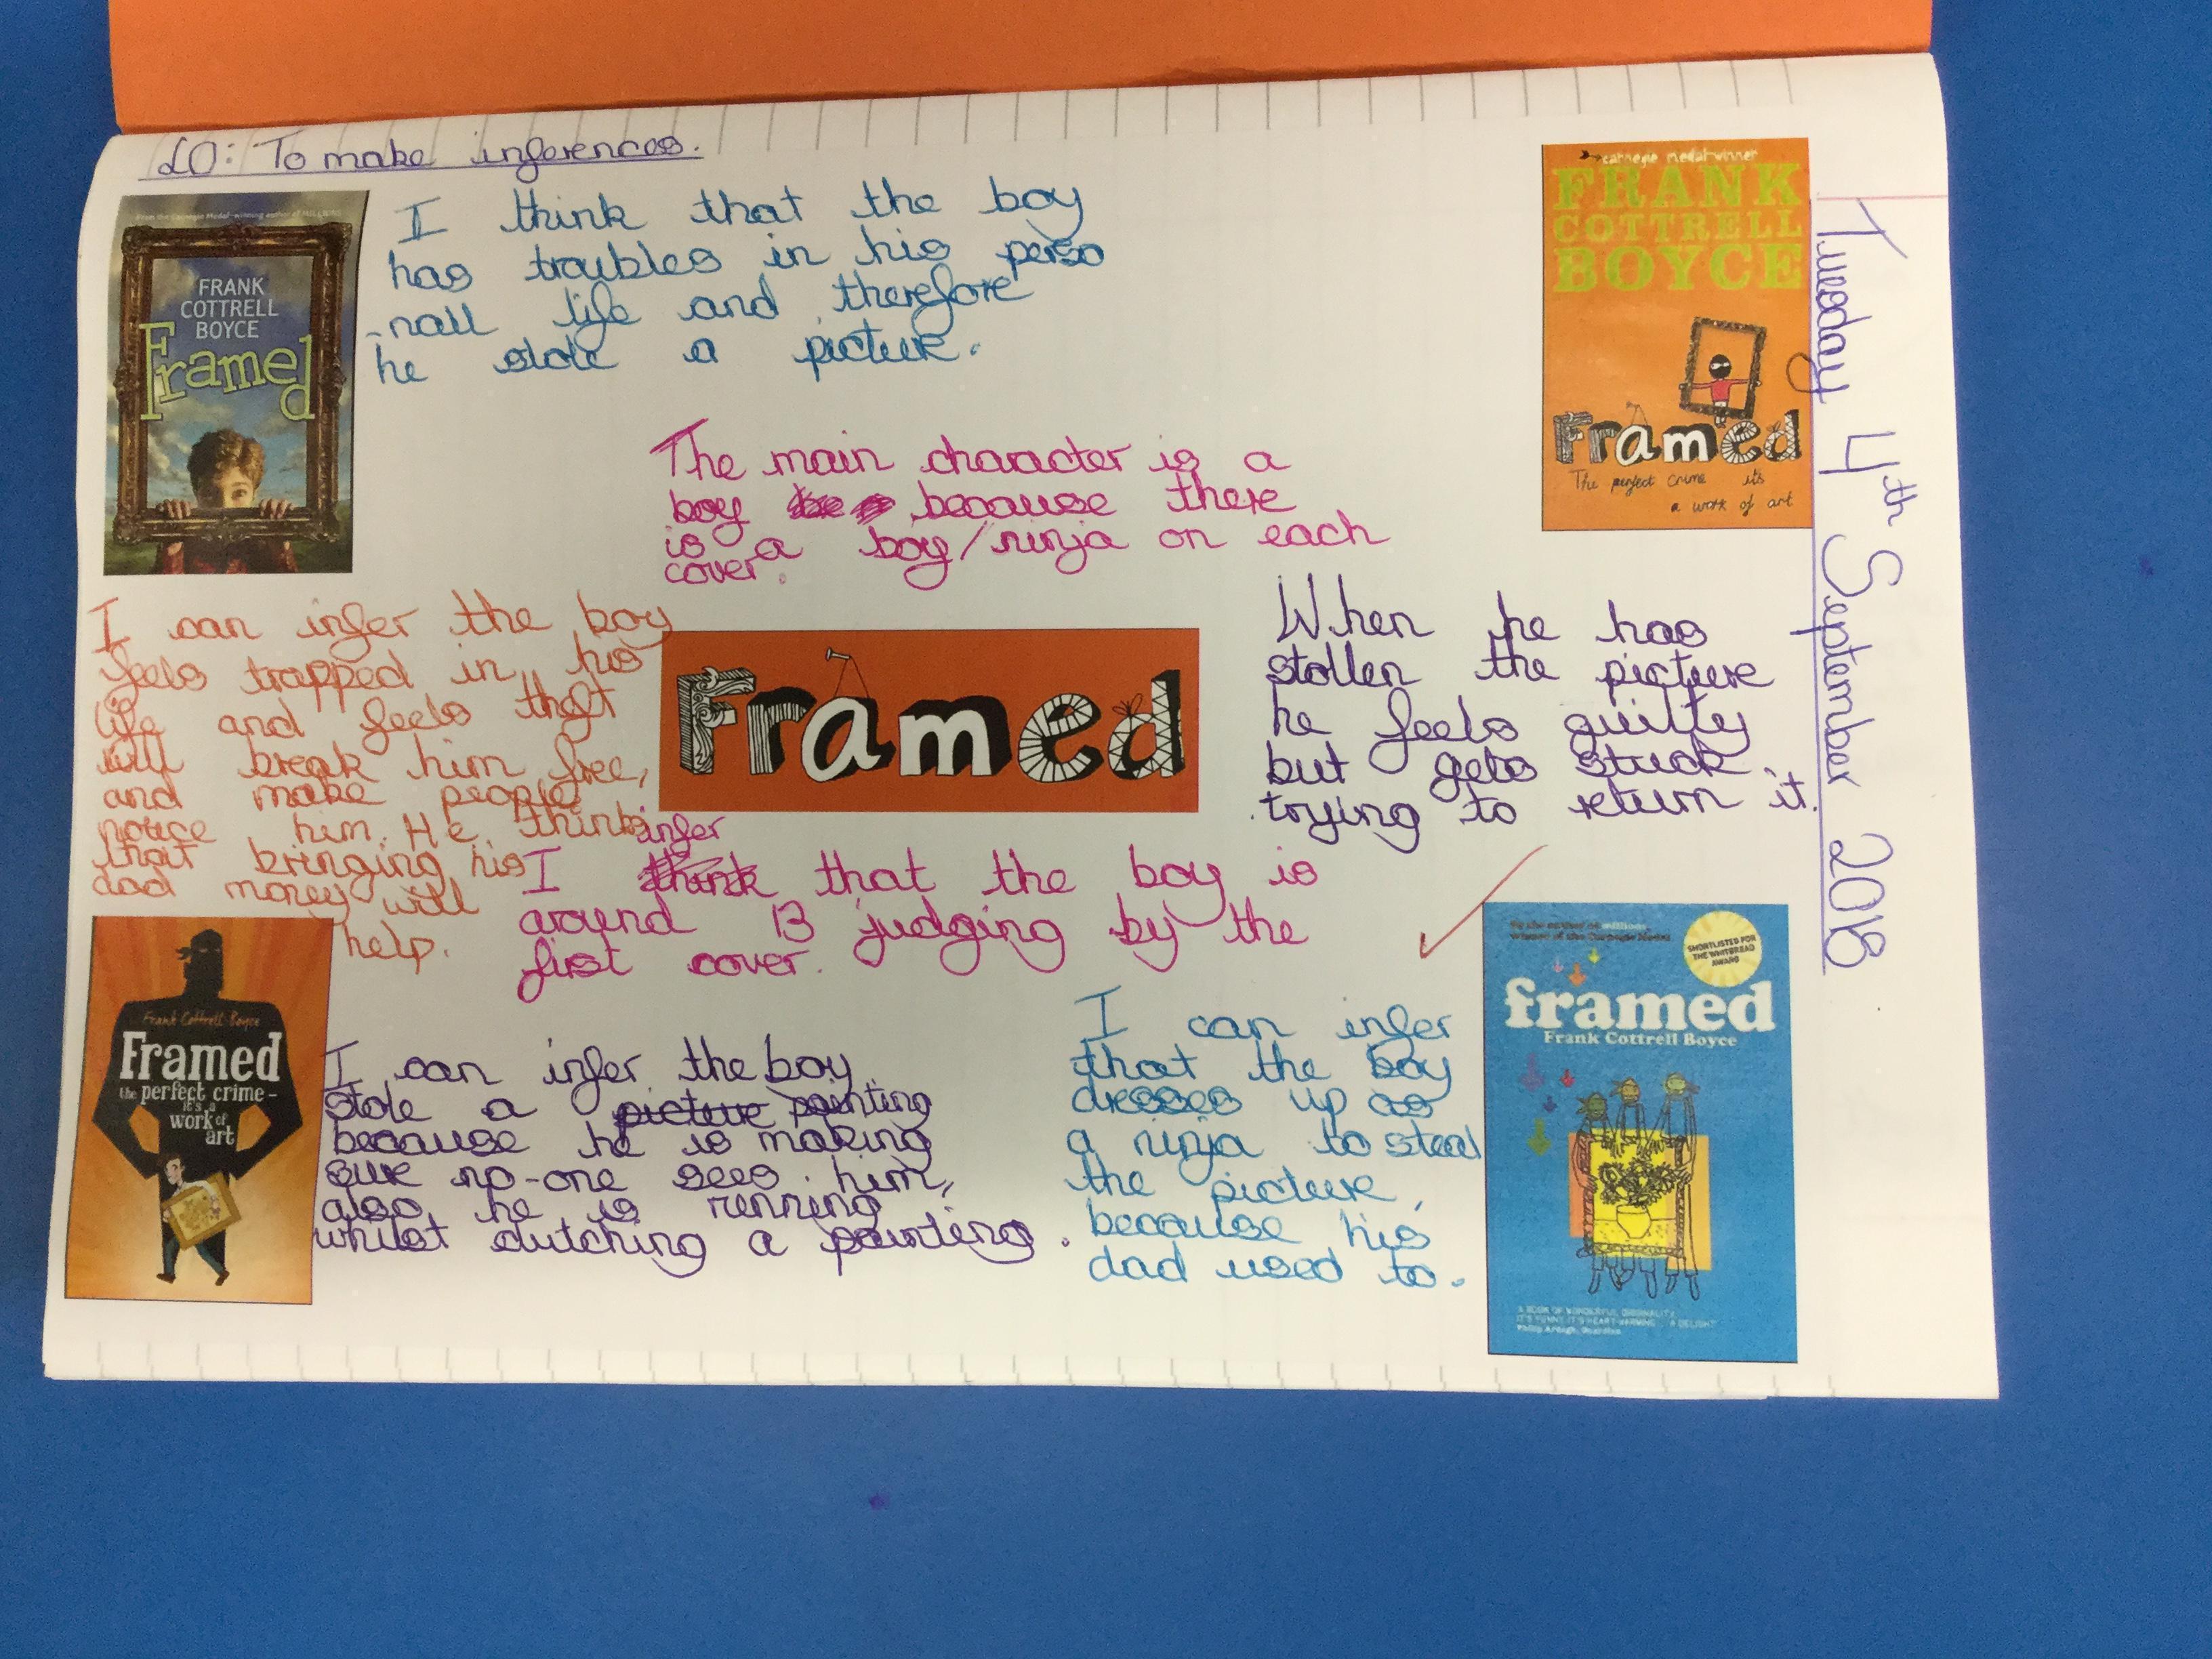 LO: To make inferences.
Tuesday 4th September 2018
From the Carnegie Medal-winning author of MILLIONS
FRANK
COTTRELL
BOYCE
Framed
I think that the boy
has troubles in his perso
-nall life and therefore
he stole a picture.
carnegie medal-winner
FRANK
COTTRELL
BOYCE
Framed
The perfect crime its
a work of art
The main character is a
boy because there
is a boy/ninja on each
cover.
I can infer the boy
feels trapped in his
life and feels theft
will break him free,
and make people
notice him. He thinks
that bringing his
dad money will
help.
Framed
When he has
stollen the picture
he feels guilty
but gets stuck
trying to return it.
infer
I think that the boy is
around 13 judging by the
first cover.
Frank Cottrell Boyce
Framed
the perfect crime -
it's a
work of
art
I can infer the boy
stole a picture painting
because he is making
sure no-one sees him,
also he is running
whilst clutching a painting.
I can infer
that the boy
dresses up as
a ninja to steal
the picture,
because his
dad used to.
By the author of millions
winner of the Carnegie Medal
SHORTLISTED FOR
THE WHITBREAD
AWARD
framed
Frank Cottrell Boyce
A BOOK OF WONDERFUL ORIGINALITY
IT'S FUNNY IT'S HEART-WARMING... A DELIGHT
Philip Ardagh, Guardian